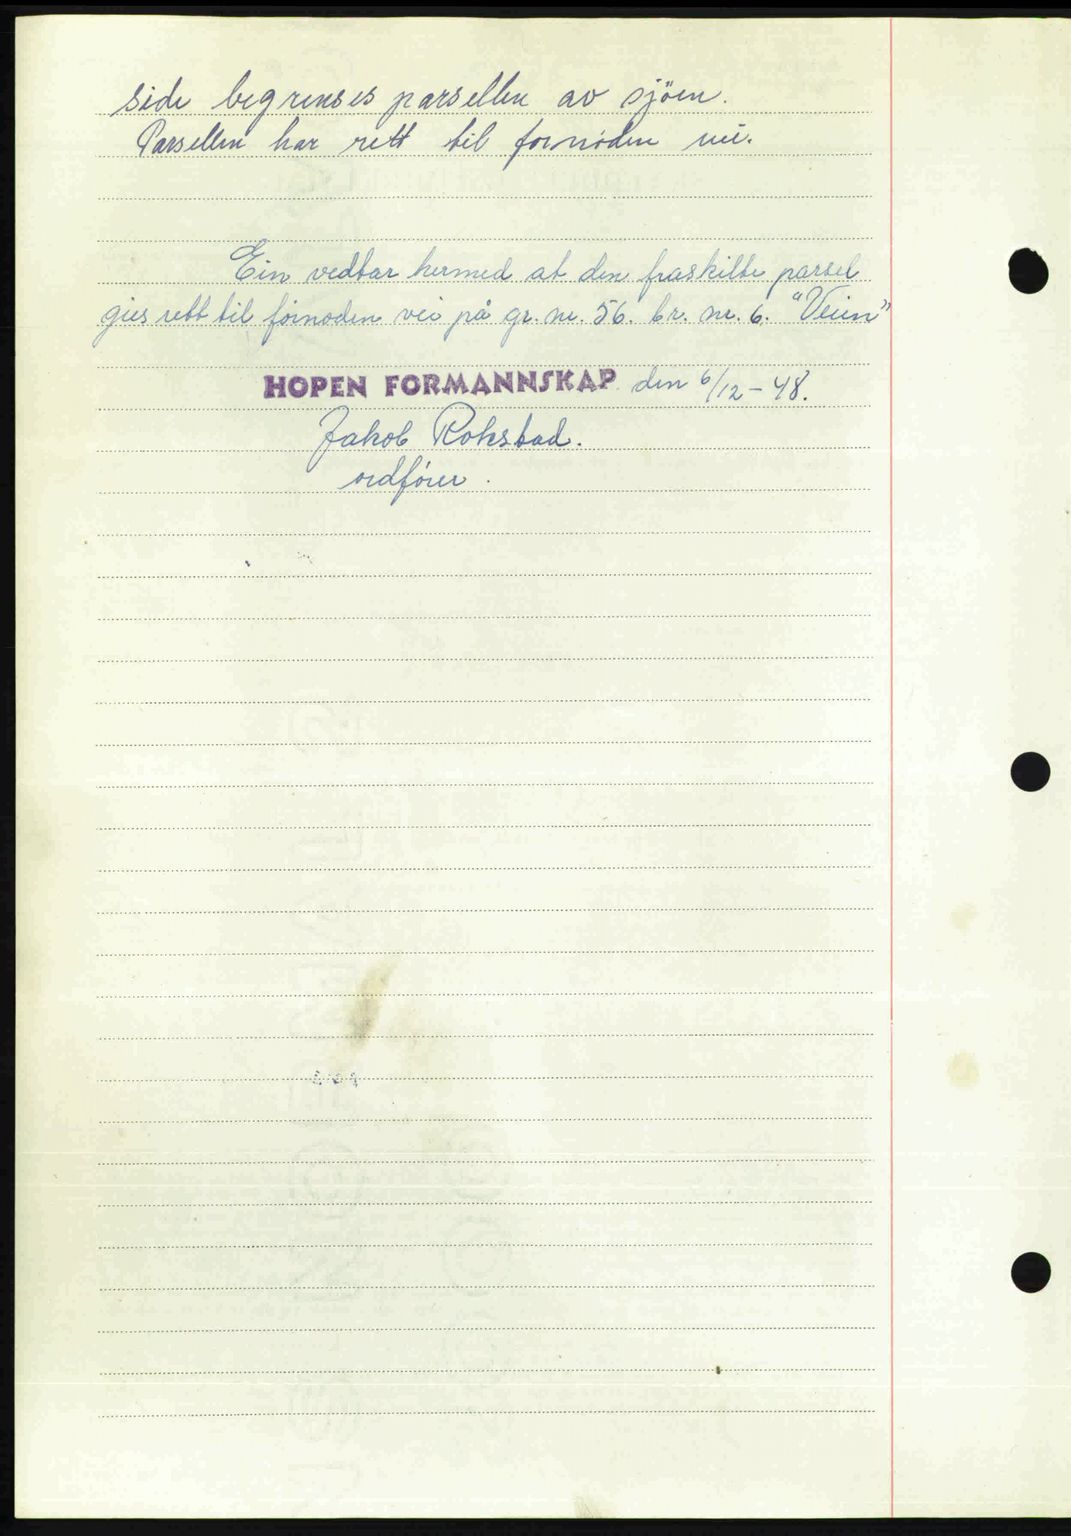 side begrenses parsellen av sjöen.
Parsellen har rett til fornøden vei.
Ein vedtar hermed at den fraskilte parsel
gies rett til fornøden vei på gr. nr. 56. br. nr. 6. "Veien"
HOPEN FORMANNSKAP den 6/12-48.
Jakob Rokstad.
ordfører.